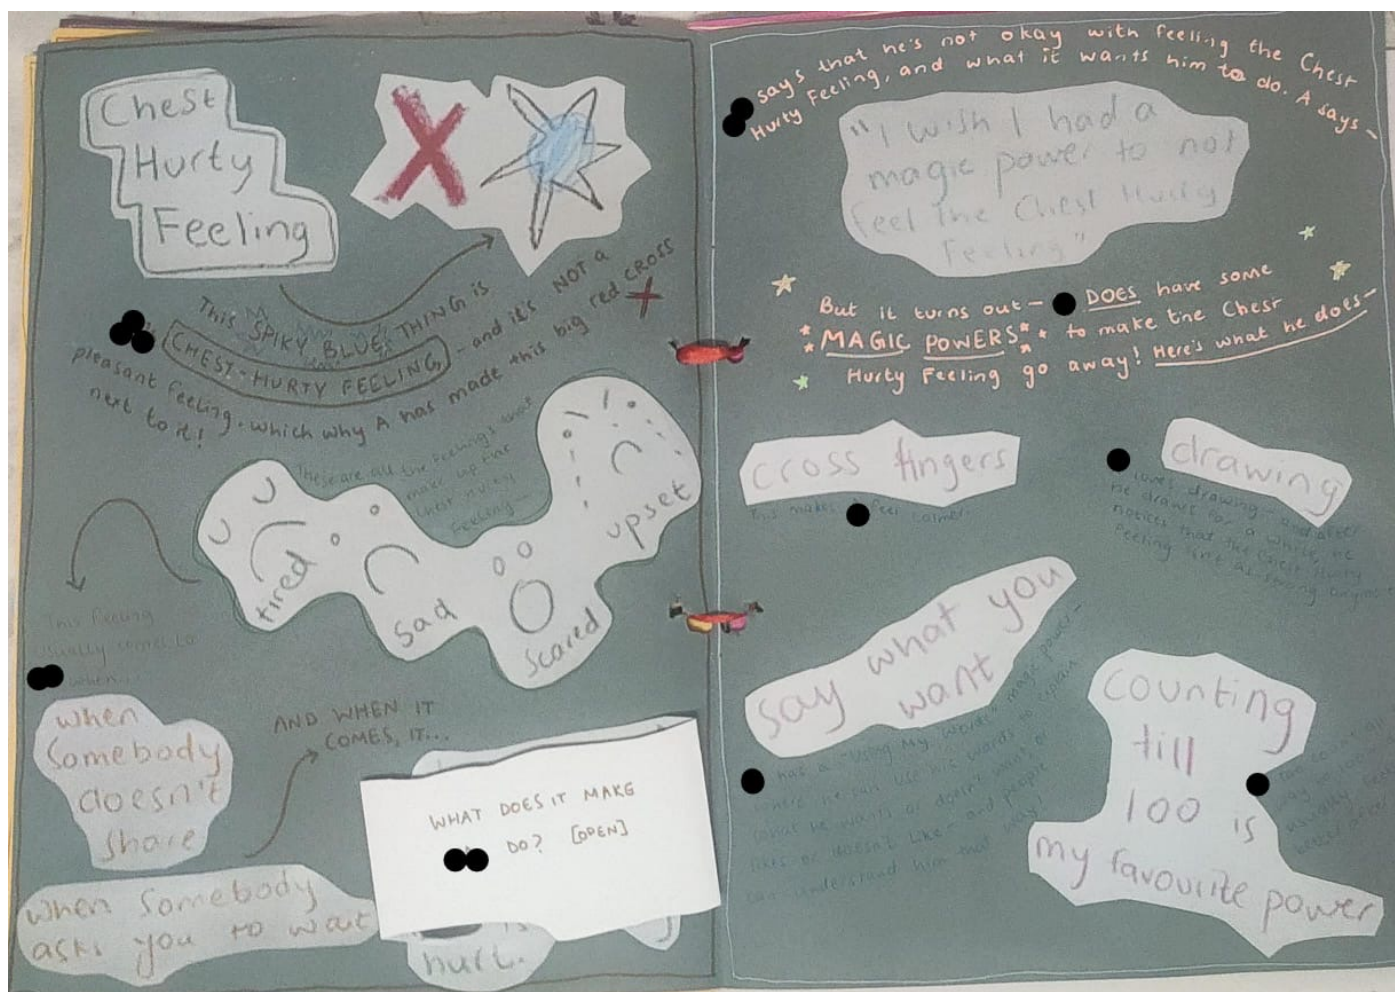 Chest
Hurty
Feeling
This SPIKY BLUE THING is
CHEST-HURTY FEELING - and it's NOT A
pleasant feeling. which why A has made this big red CROSS
next to it!
These are all the feelings that
make up the
Chest Hurty
Feeling -
tired
sad
scared
upset
This feeling
usually comes to
when...
when
Somebody
doesn't
share
when Somebody
asks you to wait
AND WHEN IT
COMES, IT...
WHAT DOES IT MAKE
DO? [OPEN]
hurt.
says that he's not okay with feeling the Chest
Hurty Feeling, and what it wants him to do. A says -
"I wish I had a
magic power to not
feel the Chest Hurty
Feeling"
But it turns out - DOES have some
*MAGIC POWERS* to make the Chest
Hurty Feeling go away! Here's what he does -
cross fingers
This makes feel calmer.
drawing
loves drawing - and after
he draws for a while, he
notices that the Chest Hurty
Feeling isn't as strong anymore
say what you
want
has a "Using My Words" magic power -
where he can use his words to explain
what he wants or doesn't want, or
likes or doesn't like - and people
can understand him that way!
counting
till
100 is
my favourite power
can count all
way to 100
usually feels